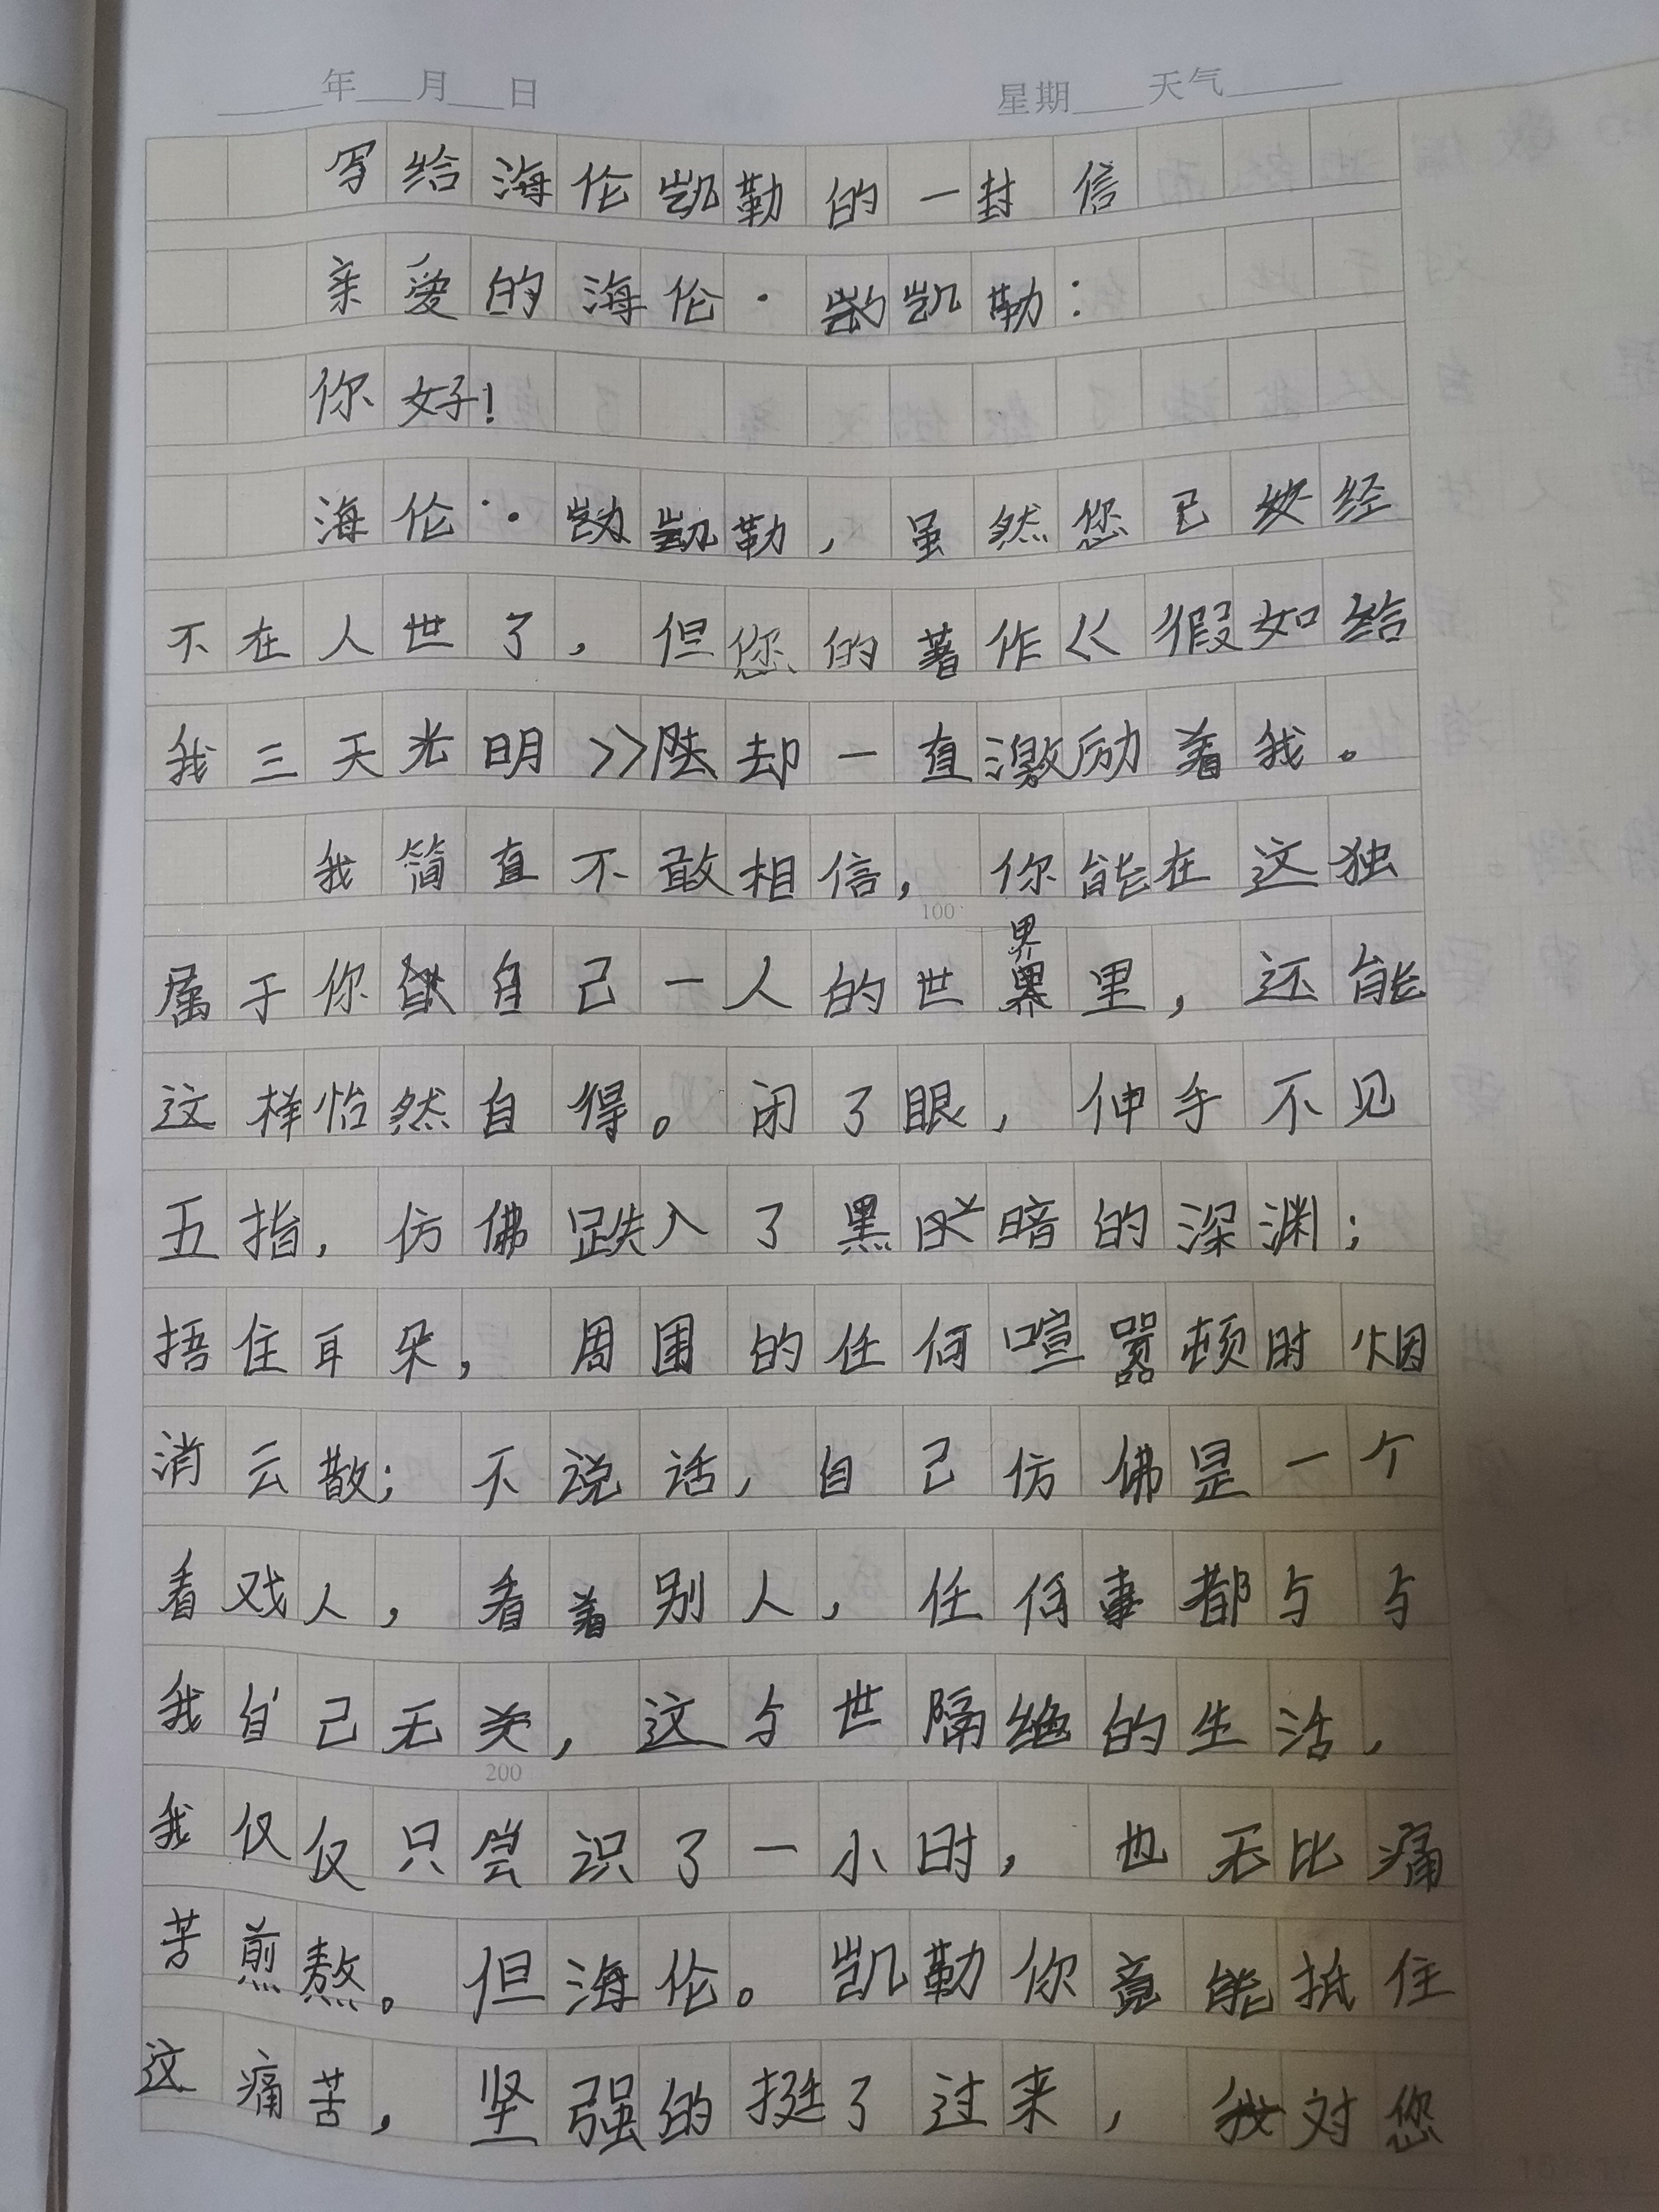 年 月 日 星期 天气
写给海伦凯勒的一封信
亲爱的海伦·凯勒：
你好！
海伦·凯勒，虽然您已经
不在人世了，但您的著作《假如给
我三天光明》却一直激励着我。
我简直不敢相信，你能在这独
100
属于你自己一人的世界里，还能
这样怡然自得。闭了眼，伸手不见
五指，仿佛跌入了黑暗的深渊；
捂住耳朵，周围的任何喧嚣顿时烟
消云散；不说话，自己仿佛是一个
看戏人，看着别人，任何事都与与
我自己无关，这与世隔绝的生活，
200
我仅仅只尝识了一小时，也无比痛
苦煎熬。但海伦。凯勒你竟能抵住
这痛苦，坚强的挺了过来，我对您